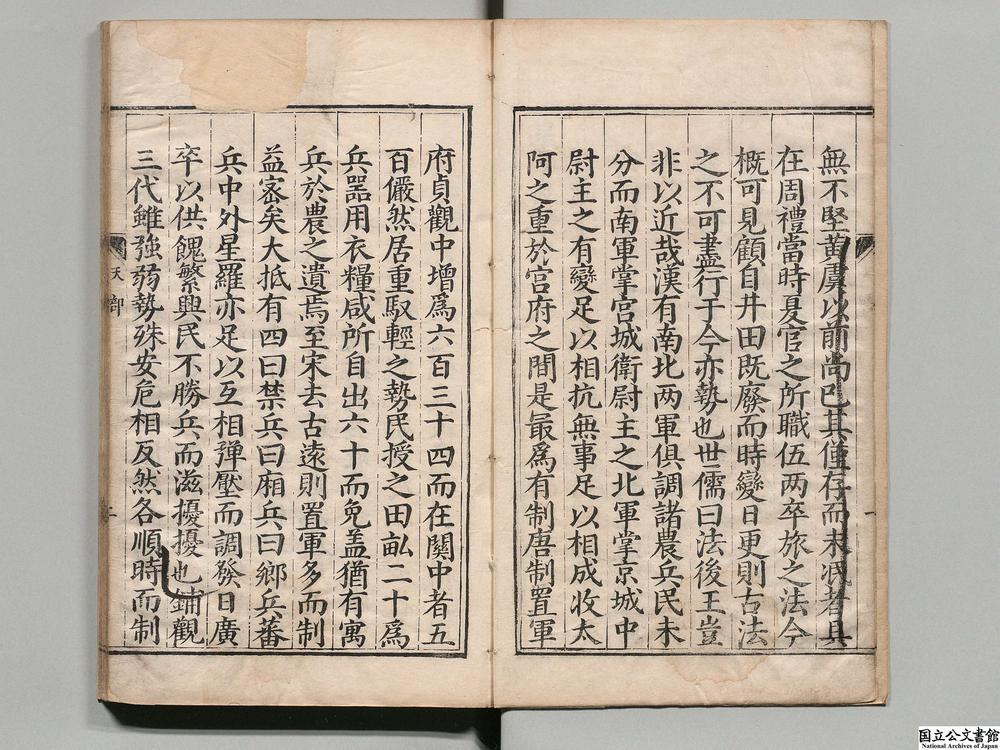 無不堅黄虞以前尚已其僅存而未泯者具
在周禮當時夏官之所職伍两卒旅之法今
概可見顧自井田既廢而時變日更則古法
之不可盡行于今亦勢也世儒曰法後王豈
非以近哉漢有南北两軍俱調諸農兵民未
分而南軍掌宮城衛尉主之北軍掌京城中
尉主之有變足以相抗無事足以相成收太
阿之重於宮府之間是最為有制唐制置軍
府貞觀中增為六百三十四而在関中者五
百儼然居重馭輕之勢民授之田畝二十為
兵器用衣糧咸所自出六十而免盖猶有寓
兵於農之遺焉至宋去古遠則置軍多而制
益密矣大抵有四曰禁兵曰廂兵曰鄉兵蕃
兵中外星羅亦足以互相彈壓而調發日廣
卒以供餽繁興民不勝兵而滋擾擾也鋪觀
三代雖強弱勢殊安危相反然各順時而制
天部
一
二
国立公文書館
National Archives of Japan